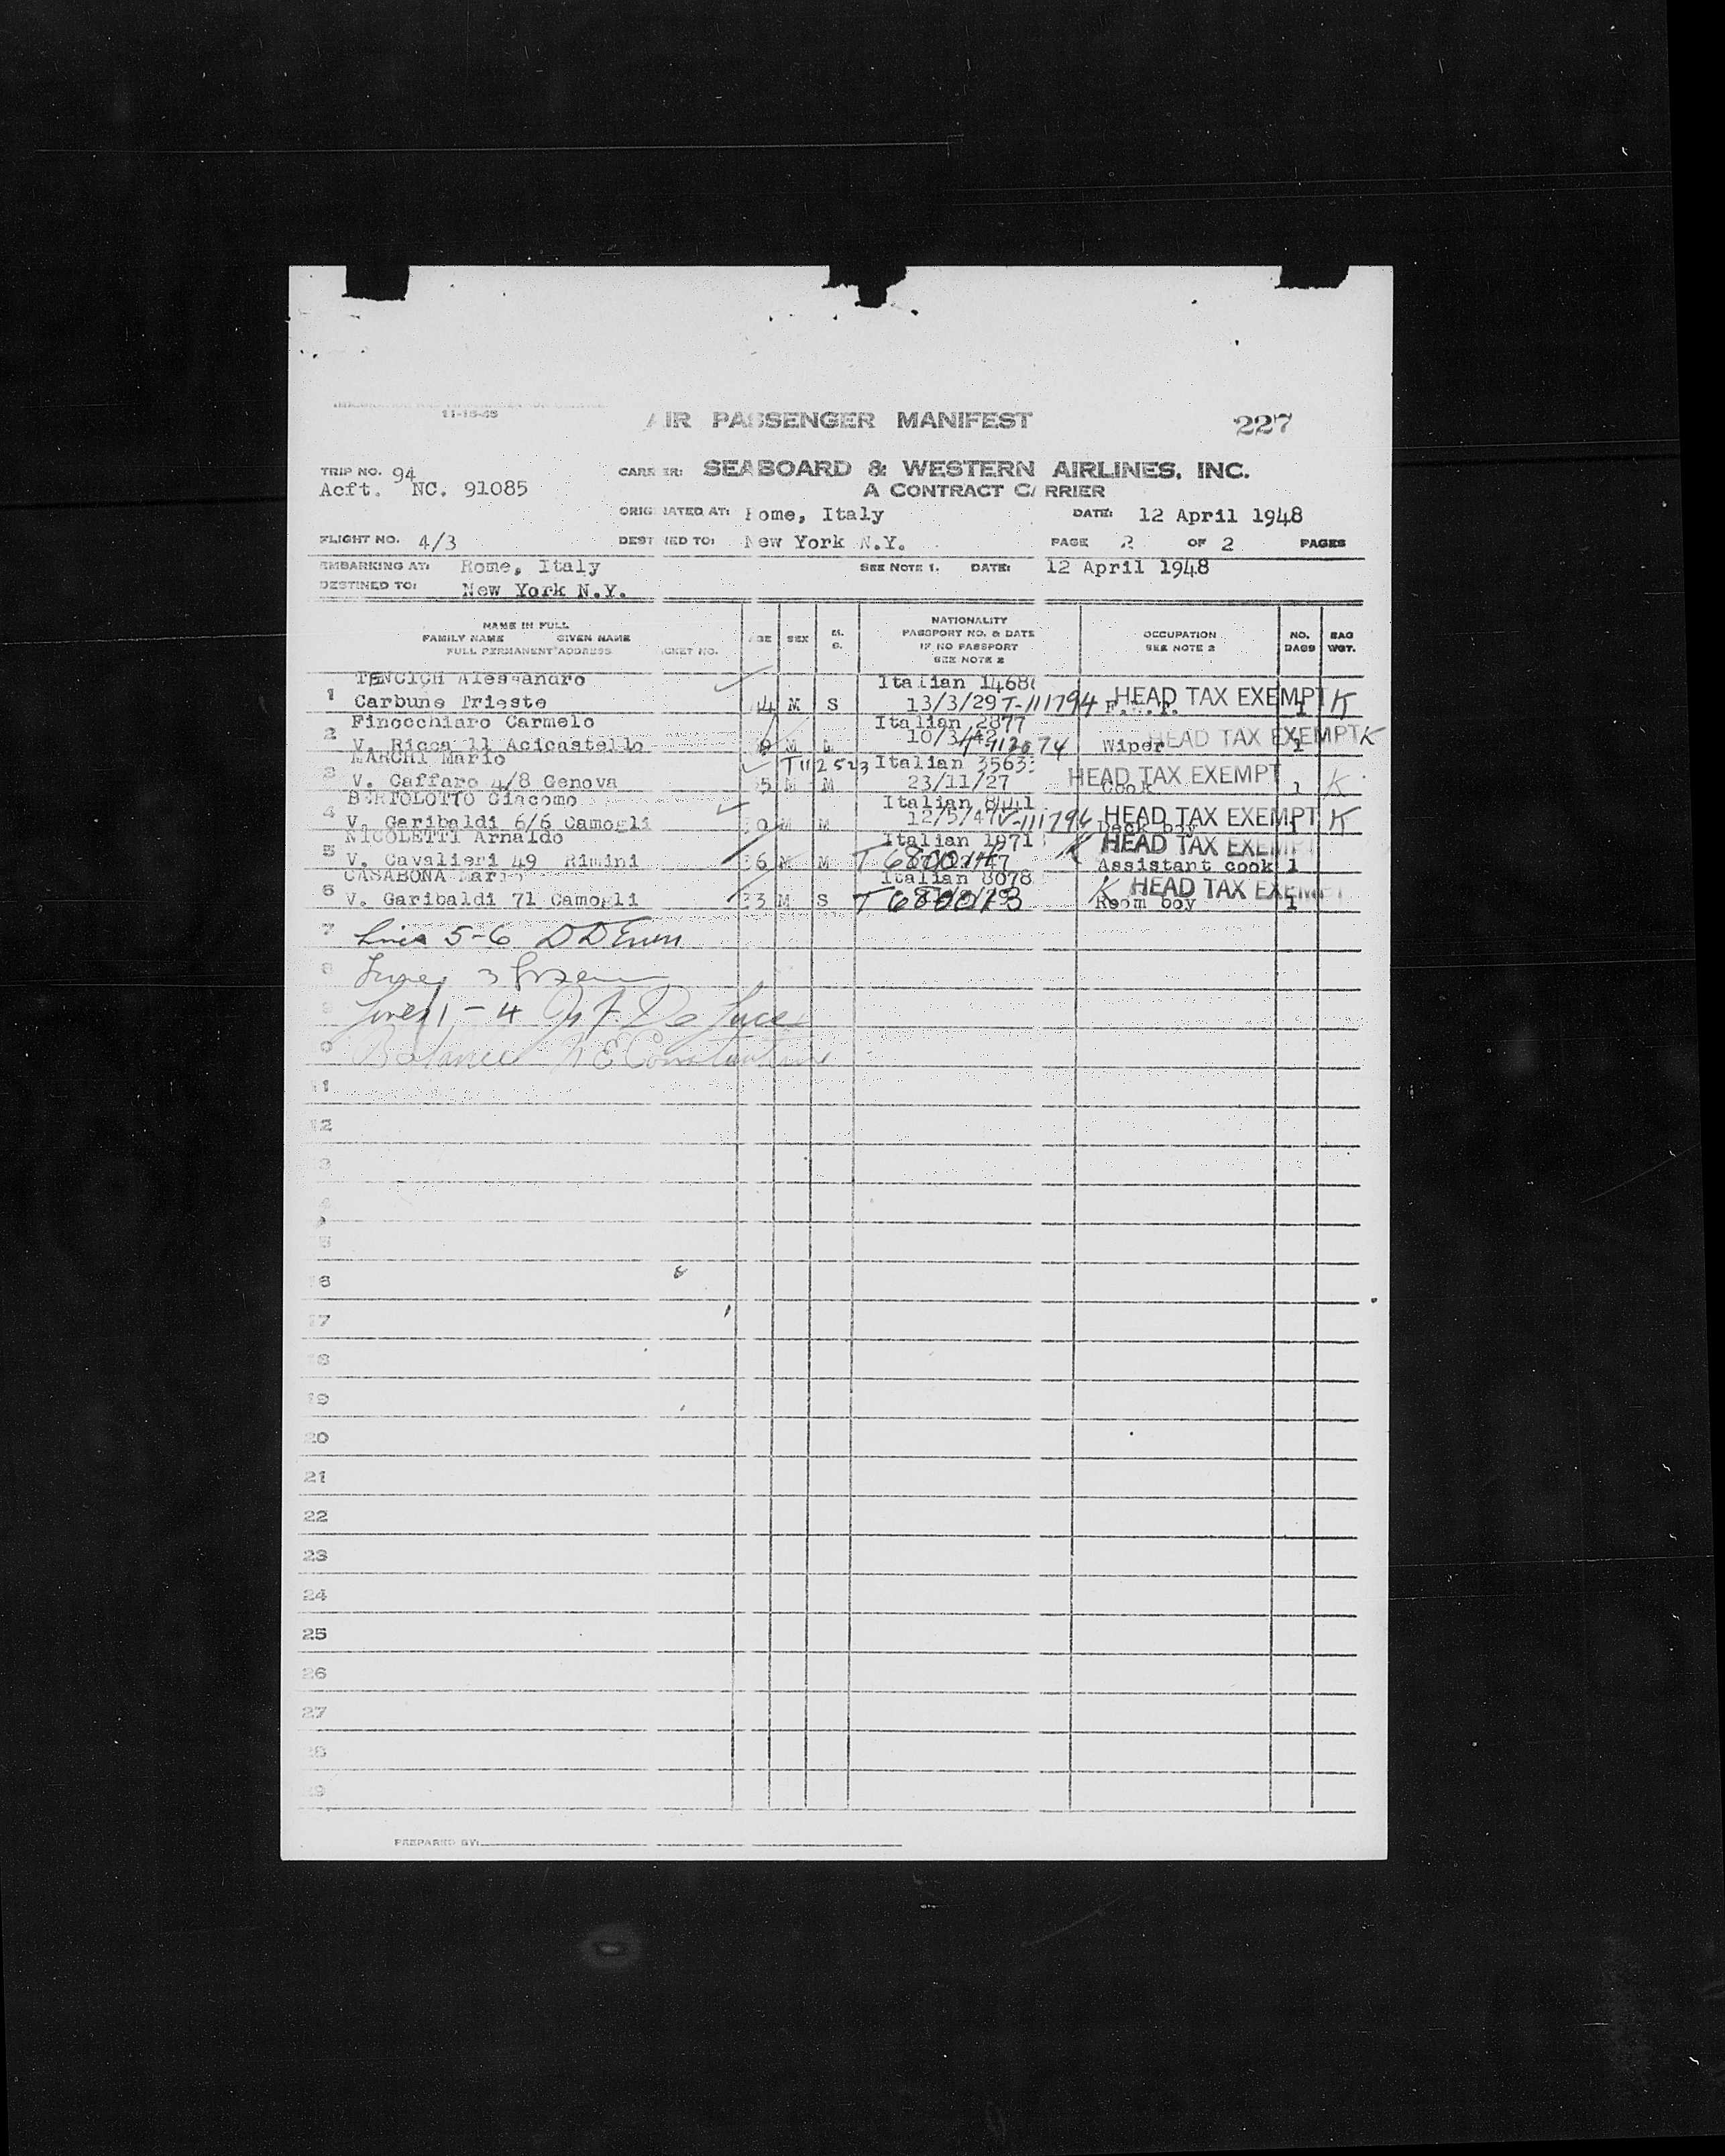 11-15-45
AIR PASSENGER MANIFEST
227
TRIP NO. 94
CARRIER: SEABOARD & WESTERN AIRLINES, INC.
Acft. NC. 91085
A CONTRACT CARRIER
ORIGINATED AT: Rome, Italy DATE: 12 April 1948
FLIGHT NO. 4/3 DESTINED TO: New York N.Y. PAGE 2 OF 2 PAGES
EMBARKING AT: Rome, Italy SEE NOTE 1. DATE: 12 April 1948
DESTINED TO: New York N.Y.
NAME IN FULL
FAMILY NAME GIVEN NAME
FULL PERMANENT ADDRESS
AGE SEX M. S.
NATIONALITY
PASSPORT NO. & DATE
IF NO PASSPORT
SEE NOTE 2
OCCUPATION
SEE NOTE 2
NO. BAGS
BAG WGT.
TENCICH Alessandro Italian
1 Carbune Trieste M S 13/3/29 T-111794 HEAD TAX EXEMPT 1 K
Finocchiaro Carmelo Italian 2877
2 V. Ricca 11 Acicastello M 10/3/42 Wiper HEAD TAX EXEMPT 1 K
MARCHI Mario T112523 Italian
3 V. Caffaro 4/8 Genova M M 23/11/27 Cook HEAD TAX EXEMPT 1 K
BERTOLOTTO Giacomo Italian 8441
4 V. Garibaldi 6/6 Camogli M M 12/5/47 Deck boy HEAD TAX EXEMPT 1 K
NICOLETTI Arnaldo Italian 1971 K HEAD TAX EXEMPT
5 V. Cavalieri 49 Rimini M M Assistant cook 1
CASABONA Mario Italian 8078 K HEAD TAX EXEMPT
6 V. Garibaldi 71 Camogli 33 M S T 680013 Room boy 1
7 Lines 5-6
8
9 Lines 1-4 De Luce
Balance
11
12
16
17
18
19
20
21
22
23
24
25
26
27
28
29
PREPARED BY: